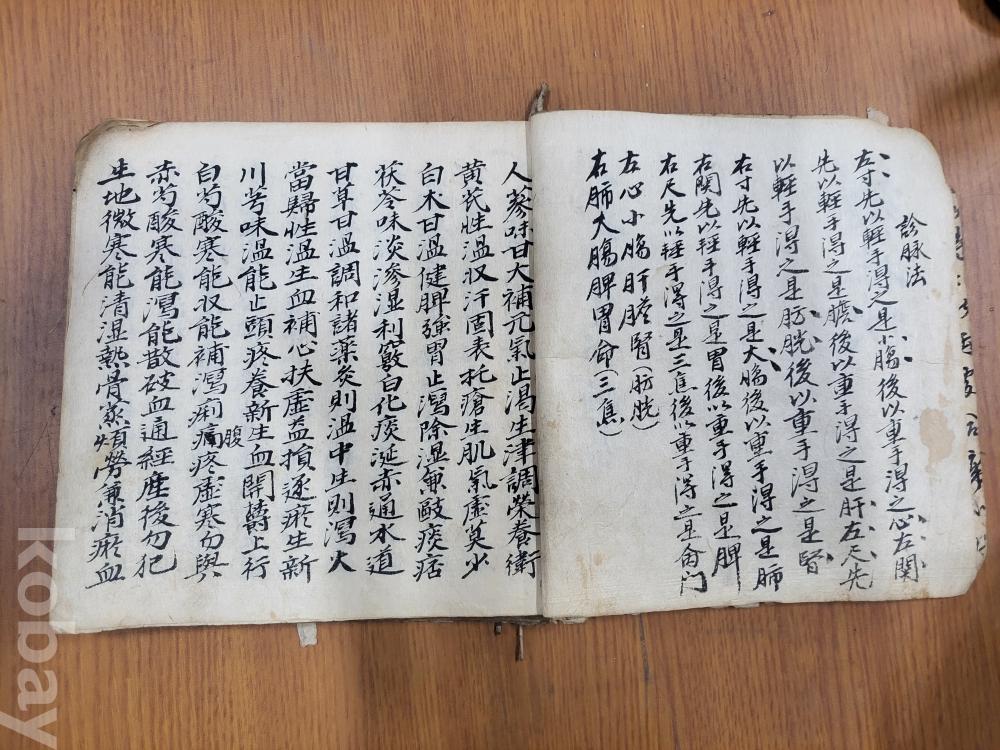 診脉法
左寸先以輕手得之是小膓後以重手得之心左関
先以輕手得之是膽後以重手得之是肝左尺先
以輕手得之是肪胱後以重手得之是腎
右寸先以輕手得之是大膓後以重手得之是肺
右関先以輕手得之是胃後以重手得之是脾
右尺先以輕手得之是三焦後以重手得之是命門
左心小膓肝膽腎(肪胱)
右肺大膓脾胃命(三焦)
人蔘味甘大補元氣止渴生津調榮養衛
黄芪性溫収汗固表托瘡生肌氣虛莫少
白木甘溫健脾強胃止瀉除湿兼敺痰痞
茯苓味淡滲湿利竅白化痰涎赤通水道
甘草甘溫調和諸藥炙則溫中生則瀉火
當歸性溫生血補心扶虛益損逐瘀生新
川芎味溫能止頭疼養新生血開欝上行
白芍酸寒能収能補瀉痢腹痛疼虛寒勿與
赤芍酸寒能瀉能散破血通經産後勿犯
生地微寒能清湿熱骨蒸煩勞兼消瘀血
kobay